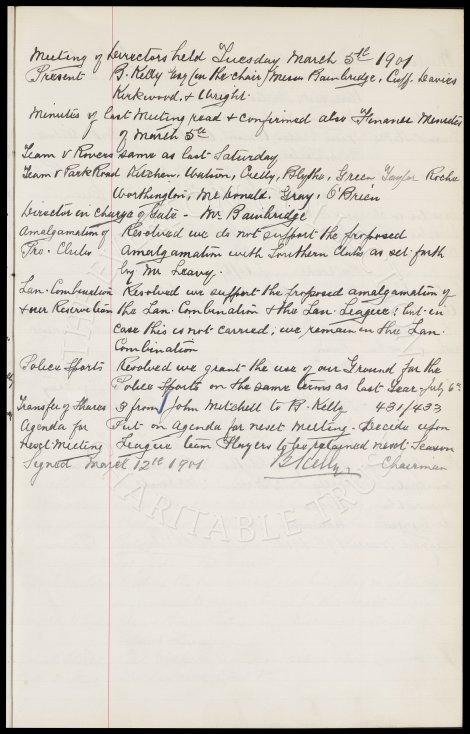 Meeting of Directors held Tuesday March 5th 1901
Present B. Kelly Esq (in the chair) Messrs Bainbridge, Cuff, Davies
Kirkwood, & Wright.
Minutes of last Meeting read & confirmed also Finance Minutes
of March 5th
Team v Rovers same as last Saturday
Team v Park Road Kitchen, Watson, Crelly, Blythe, Green Taylor Roche
Worthington, McDonald, Gray, O'Brien
Director in charge of Gate - Mr. Bainbridge
Amalgamation of Resolved we do not support the proposed
Pro. Clubs Amalgamation with Southern Clubs as set forth
by Mr Leavey.
Lan. Combination Resolved we support the proposed amalgamation of
& our Reserve Team the Lan. Combination & the Lan. League; but in
case this is not carried; we remain in the Lan.
Combination
Police Sports Resolved we grant the use of our Ground for the
Police Sports on the same terms as last Year - July 6th
Transfer of Shares 3 from John Mitchell to B. Kelly 431/433
Agenda for Put on Agenda for next Meeting - Decide upon
next Meeting League team Players to be retained next Season
Signed March 12th 1901 B Kelly Chairman
CHARITABLE TRUST